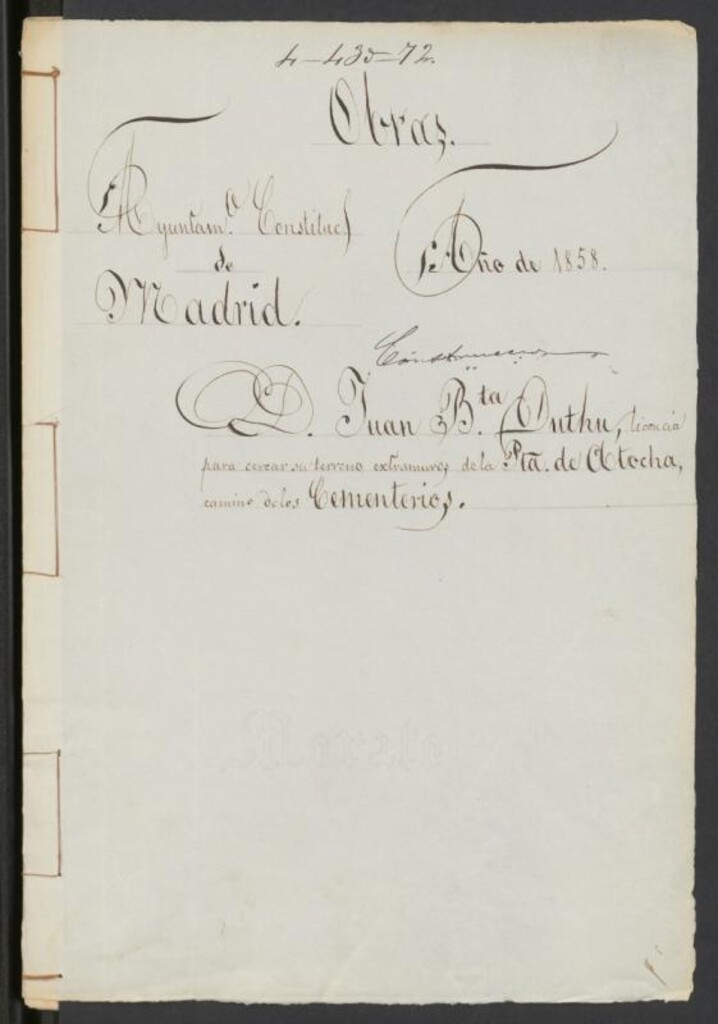 4-430-72.
Obras.
Ayuntam.º Constituc.l
de
Madrid.
Año de 1858.
Construccion
D. Juan B.ta Duthu, licencia
para cercar su terreno extramuros de la Pta. de Atocha,
camino de los Cementerios.